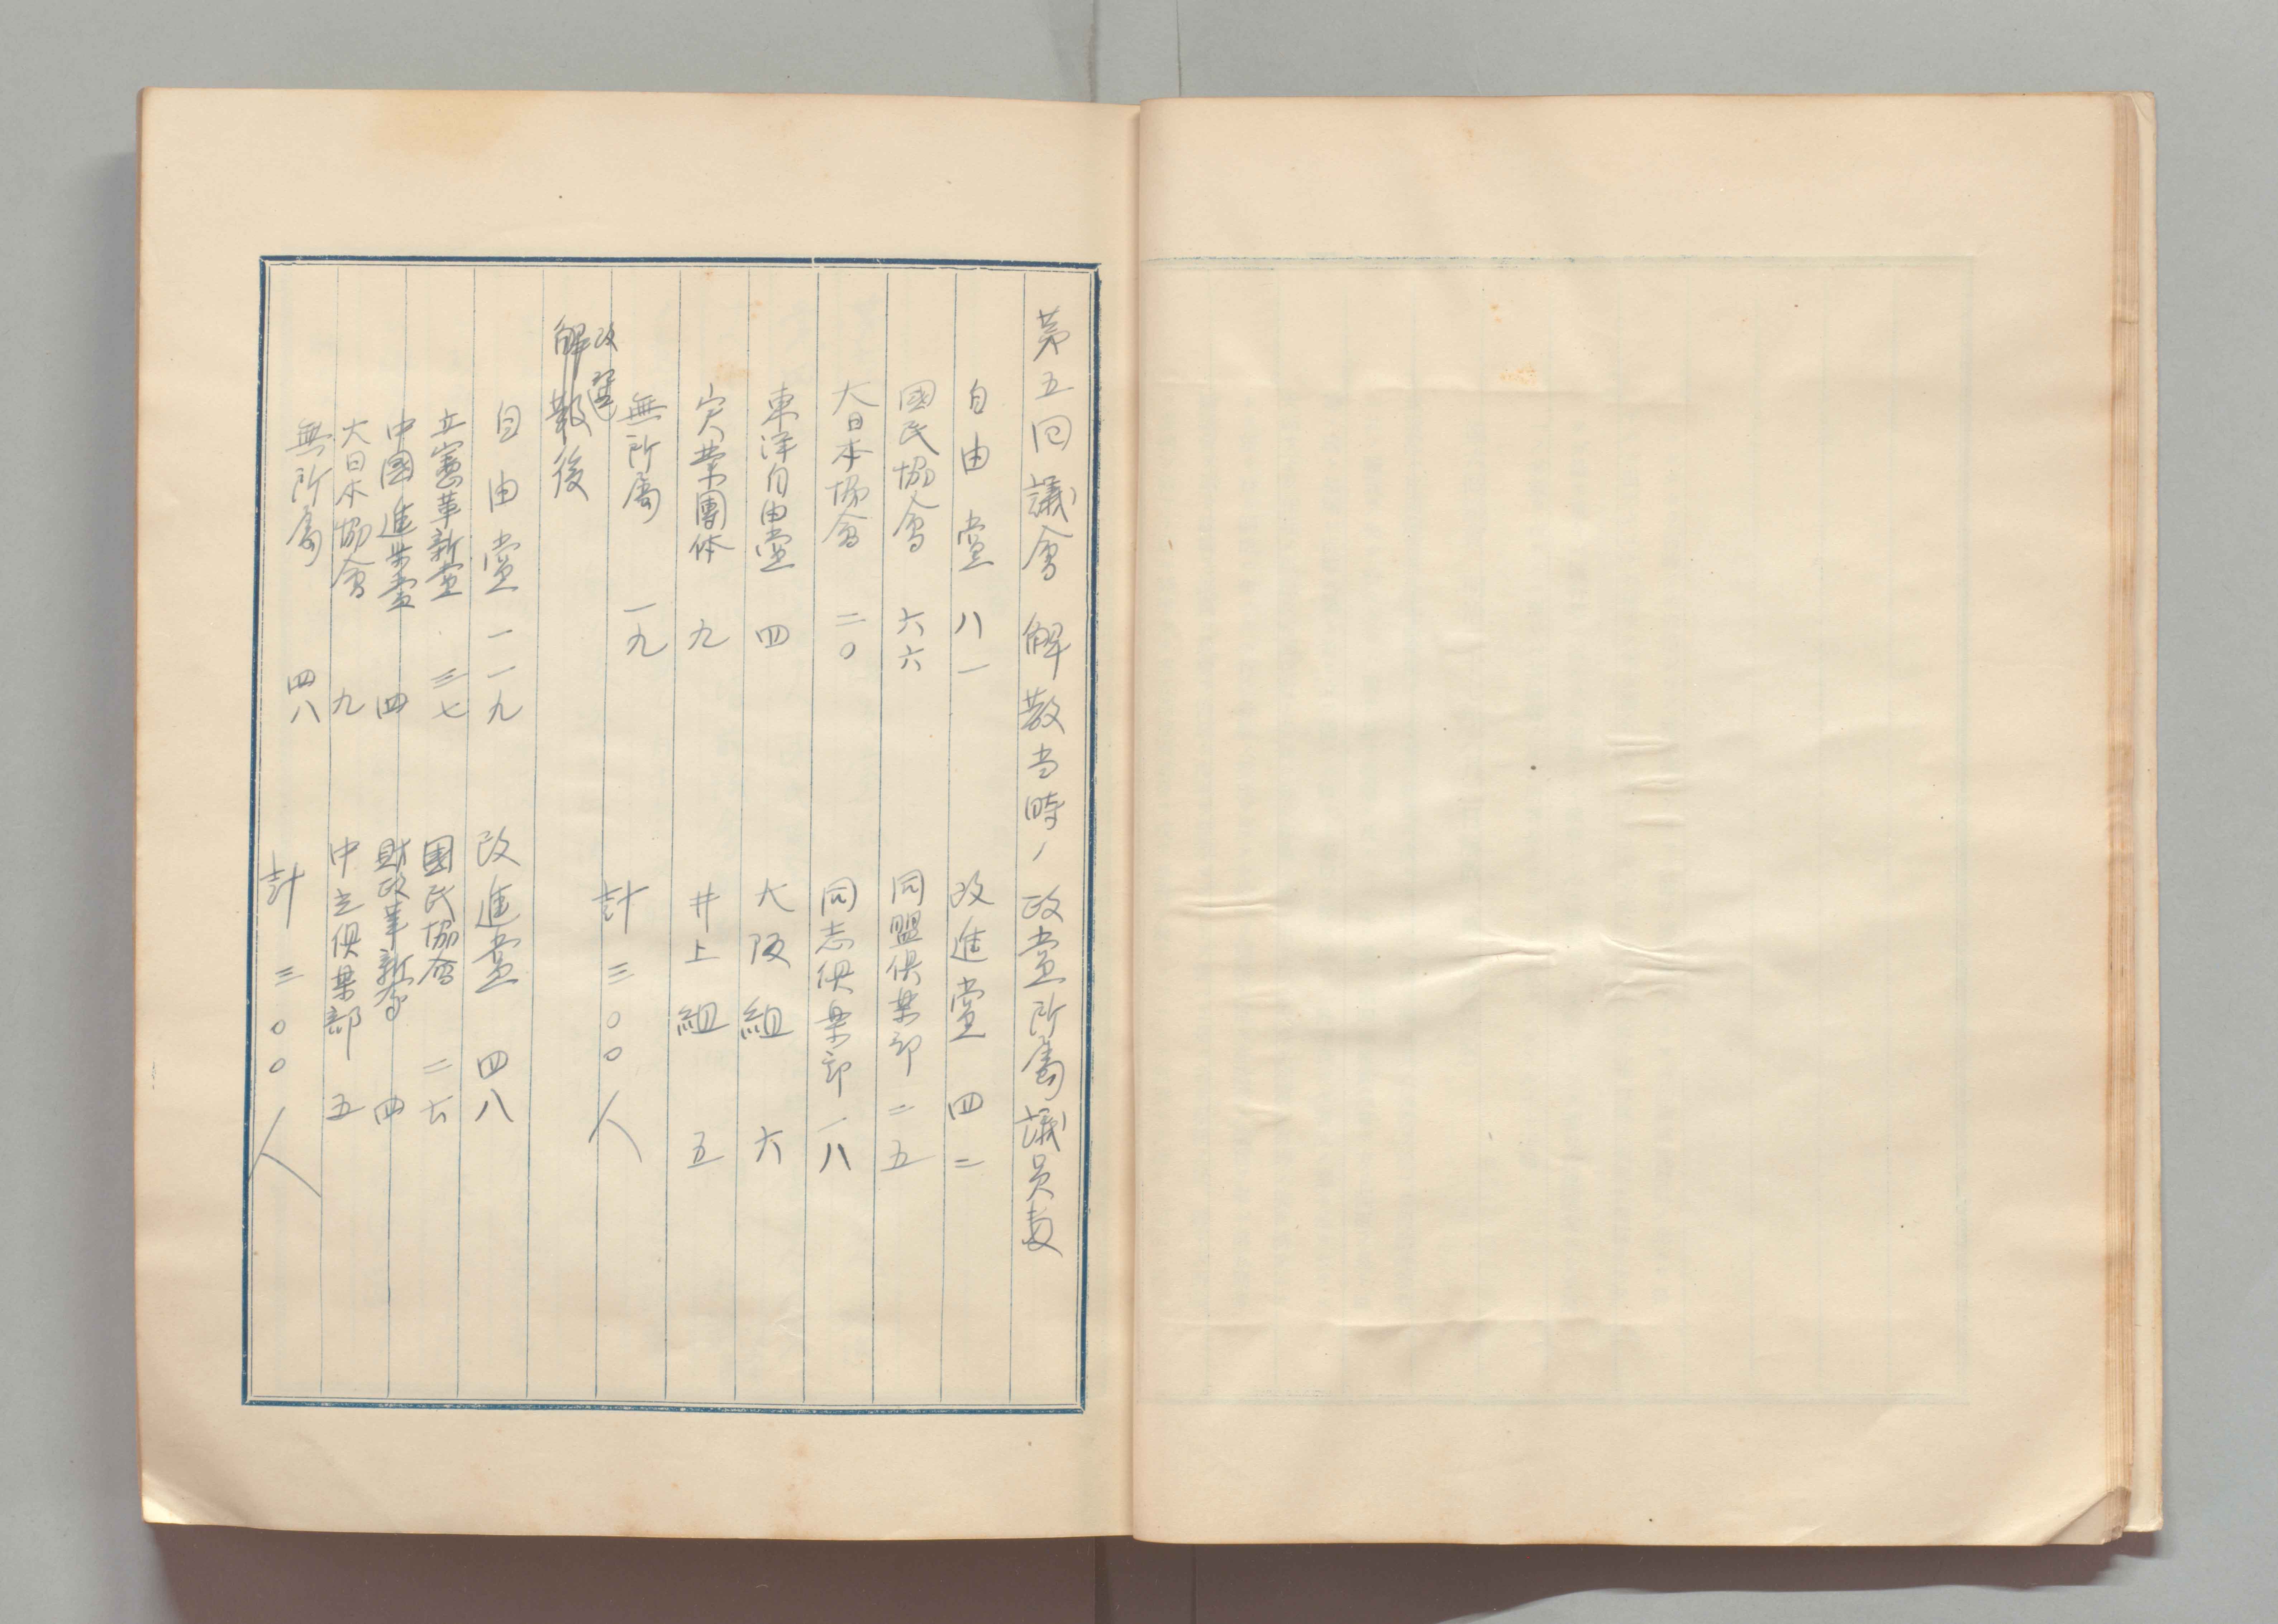 第五回議會解散当時ノ政党所属議員数
自由党 八一 改進党 四二
國民協會 六六 同盟倶楽部 二五
大日本協會 二〇 同志倶楽部 一八
東洋自由党 四 大阪組 六
実業團体 九 井上組 五
無所属 一九 計 三〇〇人
改選
解散後
自由党 一一九 改進党 四八
立憲革新党 三七 國民協會 二六
中國進歩党 四 財政革新會 四
大日本協會 九 中立倶楽部 五
無所属 四八 計 三〇〇人